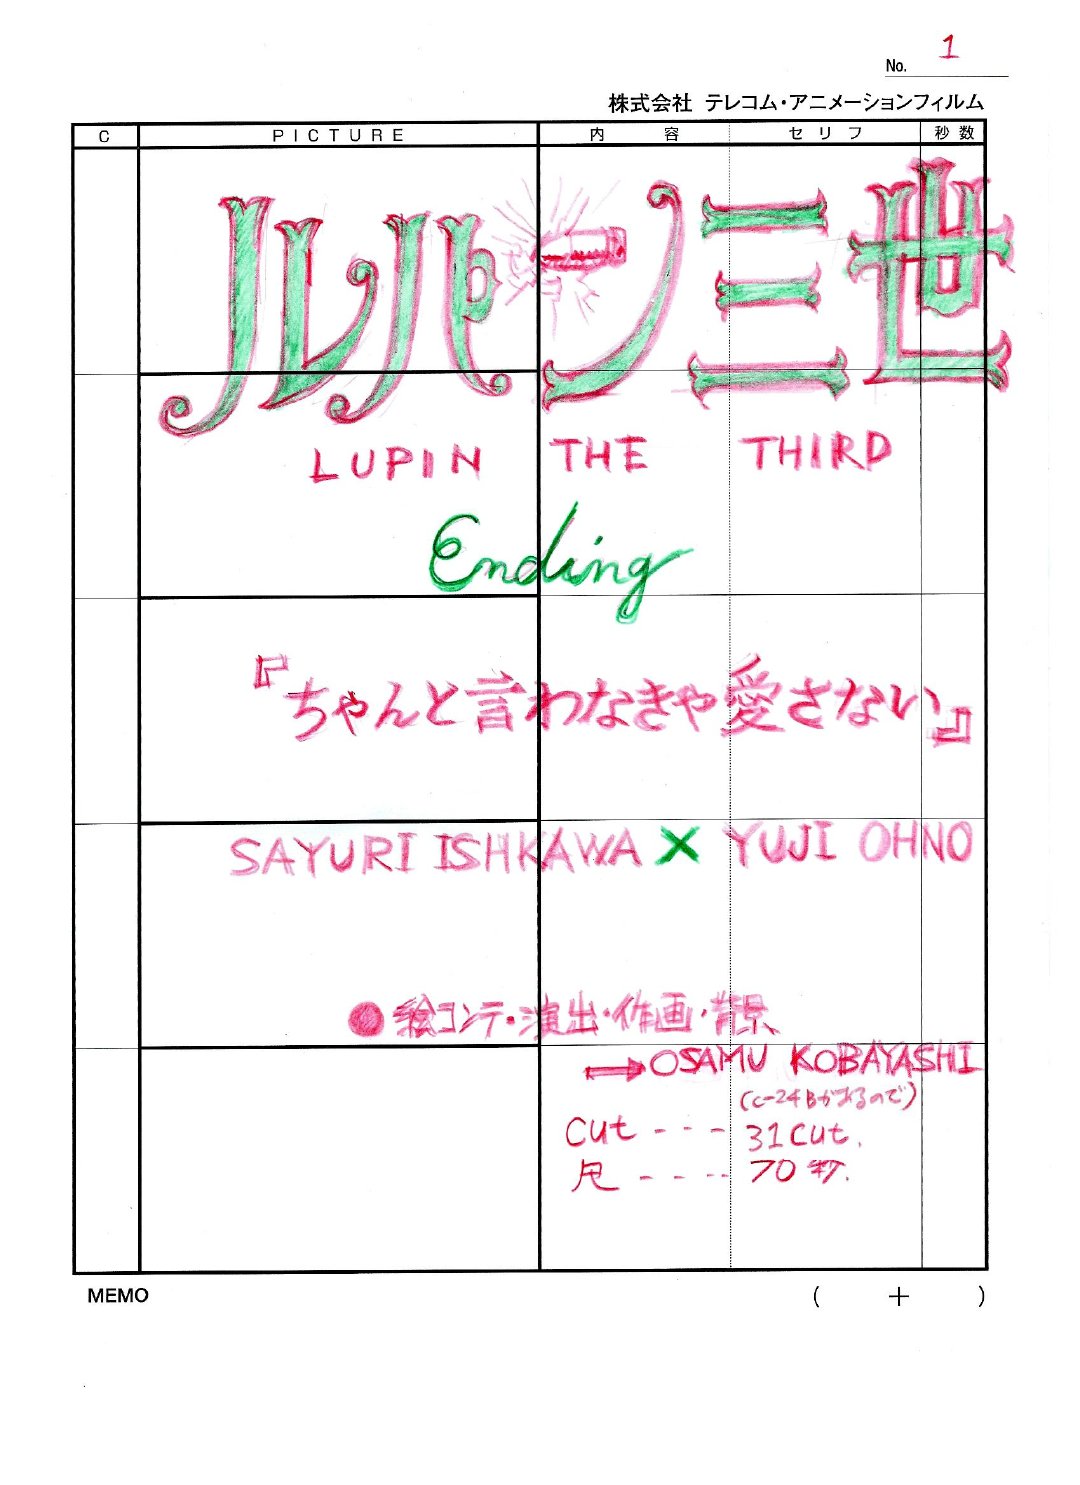 No. 1
株式会社 テレコム・アニメーションフィルム
C PICTURE 内容 セリフ 秒数
ルパン三世
LUPIN THE THIRD
Ending
『ちゃんと言わなきゃ愛さない』
SAYURI ISHKAWA × YUJI OHNO
●絵コンテ・演出・作画・背景、
→OSAMU KOBAYASHI
(C-24Bがあるので)
Cut --- 31cut.
尺 ---- 70秒.
MEMO ( + )